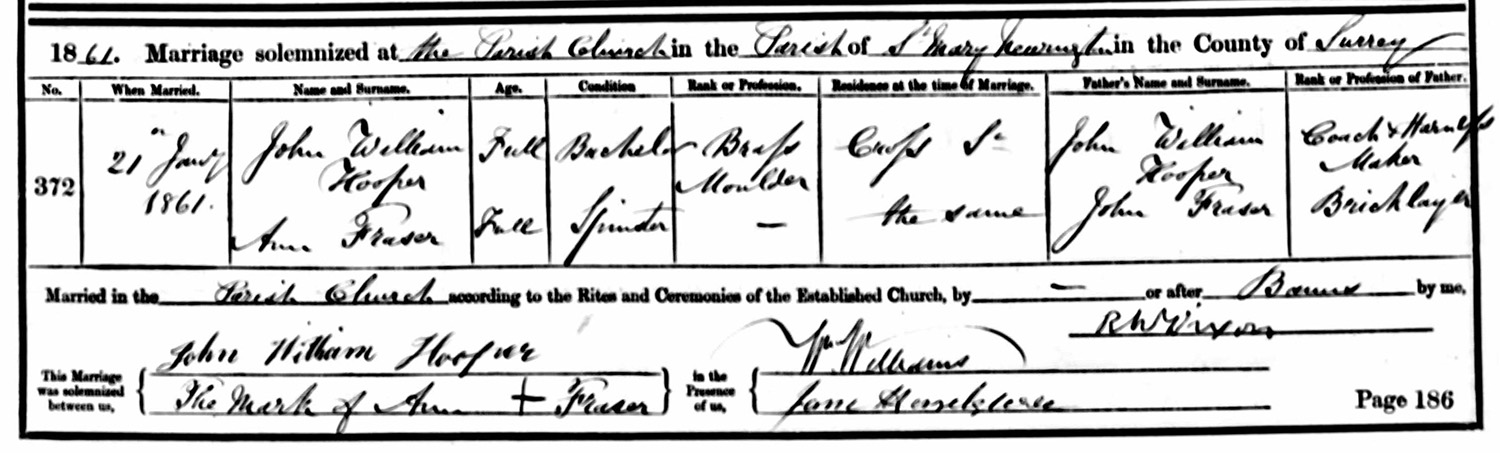 1861. Marriage solemnized at the Parish Church in the Parish of St Mary Newington in the County of Surrey
No. When Married. Name and Surname. Age. Condition Rank or Profession. Residence at the time of Marriage. Father's Name and Surname. Rank or Profession of Father.
372
21 Jany
1861.
John William
Hooper
Ann Fraser
Full
Full
Bachelor
Spinster
Brass
Moulder
—
Cross St
the same
John William
Hooper
John Fraser
Coach & Harness
Maker
Bricklayer
Married in the Parish Church according to the Rites and Ceremonies of the Established Church, by — or after Banns by me,
This Marriage was solemnized between us,
John William Hooper
The Mark of Ann + Fraser
in the Presence of us,
Wm Williams
Jane
Page 186